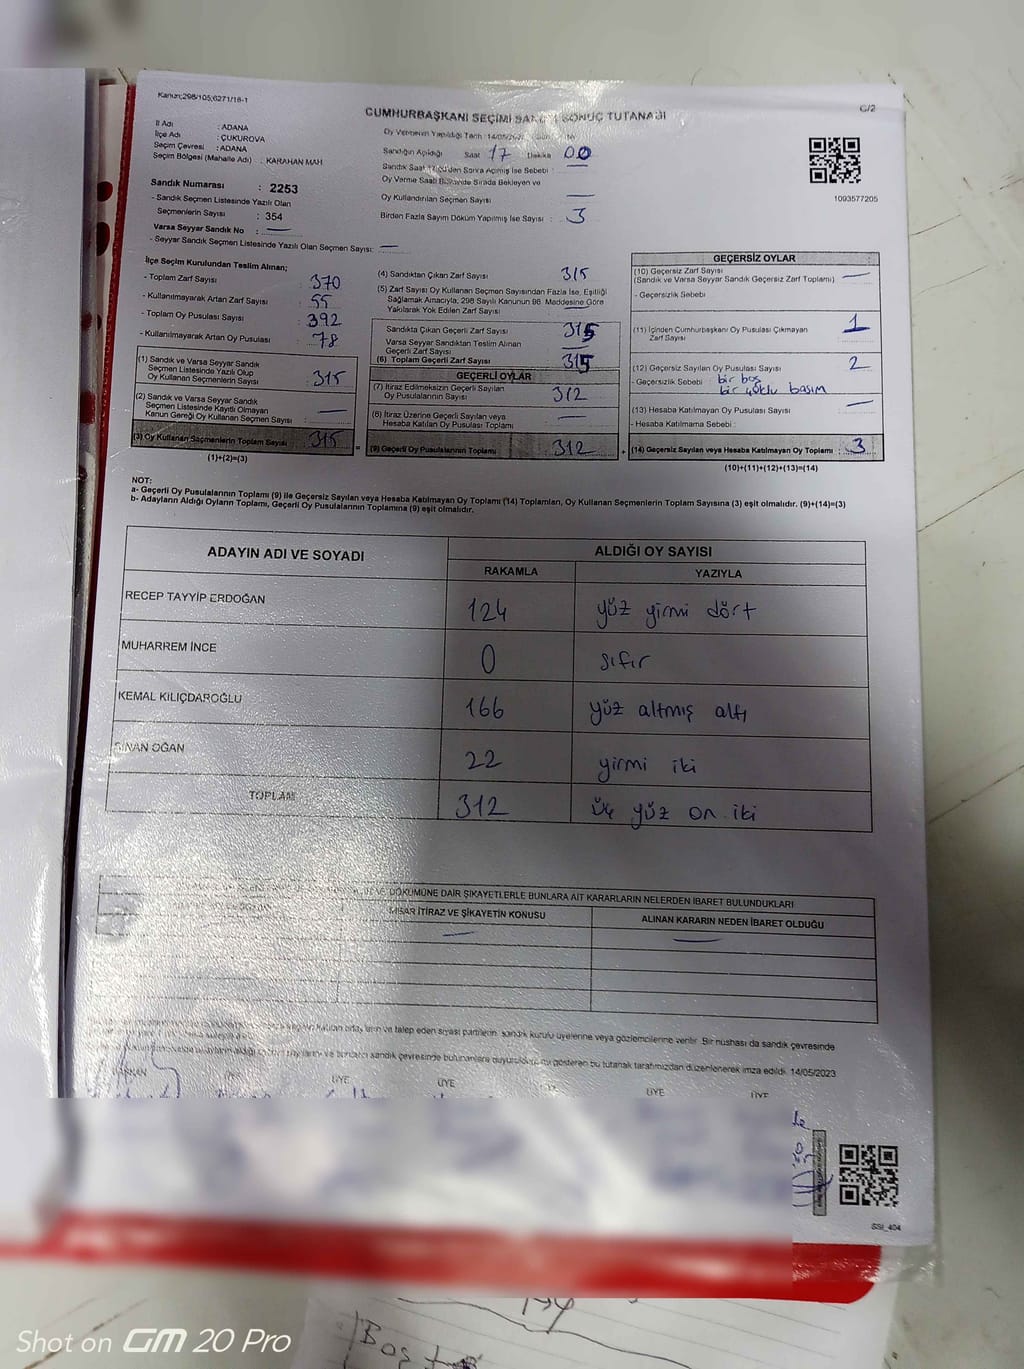 Kanun;298/105;6271/18-1
C/2
CUMHURBAŞKANI SEÇİMİ SONUÇ TUTANAĞI
İl Adı : ADANA
İlçe Adı : ÇUKUROVA
Seçim Çevresi : ADANA
Seçim Bölgesi (Mahalle Adı) : KARAHAN MAH
Oy Vermenin Yapıldığı Tarih : 14/05/
Sandığın Açıldığı Saat 17 Dakika 00
Sandık Saat Sonra Açılmış İse Sebebi :
Oy Verme Saati Sırada Bekleyen ve
Oy Kullandırılan Seçmen Sayısı
Birden Fazla Sayım Döküm Yapılmış İse Sayısı : 3
1093577205
Sandık Numarası : 2253
- Sandık Seçmen Listesinde Yazılı Olan
Seçmenlerin Sayısı : 354
Varsa Seyyar Sandık No : —
- Seyyar Sandık Seçmen Listesinde Yazılı Olan Seçmen Sayısı: —
İlçe Seçim Kurulundan Teslim Alınan;
- Toplam Zarf Sayısı : 370
- Kullanılmayarak Artan Zarf Sayısı : 55
- Toplam Oy Pusulası Sayısı : 392
- Kullanılmayarak Artan Oy Pusulası : 78
(1) Sandık ve Varsa Seyyar Sandık
Seçmen Listesinde Yazılı Olup
Oy Kullanan Seçmenlerin Sayısı : 315
(2) Sandık ve Varsa Seyyar Sandık
Seçmen Listesinde Kayıtlı Olmayan
Kanun Gereği Oy Kullanan Seçmen Sayısı : —
(3) Oy Kullanan Seçmenlerin Toplam Sayısı : 315
(1)+(2)=(3)
(4) Sandıktan Çıkan Zarf Sayısı : 315
(5) Zarf Sayısı Oy Kullanan Seçmen Sayısından Fazla İse, Eşitliği
Sağlamak Amacıyla, 298 Sayılı Kanunun 98. Maddesine Göre
Yakılarak Yok Edilen Zarf Sayısı : —
Sandıkta Çıkan Geçerli Zarf Sayısı 315
Varsa Seyyar Sandıktan Teslim Alınan
Geçerli Zarf Sayısı —
(6) Toplam Geçerli Zarf Sayısı 315
GEÇERLİ OYLAR
(7) İtiraz Edilmeksizin Geçerli Sayılan
Oy Pusulalarının Sayısı 312
(8) İtiraz Üzerine Geçerli Sayılan veya
Hesaba Katılan Oy Pusulası Toplamı —
(9) Geçerli Oy Pusulalarının Toplamı 312
GEÇERSİZ OYLAR
(10) Geçersiz Zarf Sayısı
(Sandık ve Varsa Seyyar Sandık Geçersiz Zarf Toplamı) —
- Geçersizlik Sebebi
(11) İçinden Cumhurbaşkanı Oy Pusulası Çıkmayan
Zarf Sayısı 1
(12) Geçersiz Sayılan Oy Pusulası Sayısı 2
- Geçersizlik Sebebi : bir boş
bir çoklu basım
(13) Hesaba Katılmayan Oy Pusulası Sayısı —
- Hesaba Katılmama Sebebi :
(14) Geçersiz Sayılan veya Hesaba Katılmayan Oy Toplamı : 3
(10)+(11)+(12)+(13)=(14)
NOT:
a- Geçerli Oy Pusulalarının Toplamı (9) ile Geçersiz Sayılan veya Hesaba Katılmayan Oy Toplamı (14) Toplamları, Oy Kullanan Seçmenlerin Toplam Sayısına (3) eşit olmalıdır. (9)+(14)=(3)
b- Adayların Aldığı Oyların Toplamı, Geçerli Oy Pusulalarının Toplamına (9) eşit olmalıdır.
ADAYIN ADI VE SOYADI ALDIĞI OY SAYISI
RAKAMLA YAZIYLA
RECEP TAYYİP ERDOĞAN 124 yüz yirmi dört
MUHARREM İNCE 0 sıfır
KEMAL KILIÇDAROĞLU 166 yüz altmış altı
SİNAN OĞAN 22 yirmi iki
TOPLAM 312 üç yüz on iki
DÖKÜMÜNE DAİR ŞİKAYETLERLE BUNLARA AİT KARARLARIN NELERDEN İBARET BULUNDUKLARI
İTİRAZ VE ŞİKAYETİN KONUSU ALINAN KARARIN NEDEN İBARET OLDUĞU
— —
ve talep eden siyasi partilerin, sandık kurulu üyelerine veya gözlemcilerine verilir. Bir nüshası da sandık çevresinde
sandık çevresinde bulunanlara gösteren bu tutanak tarafımızdan düzenlenerek imza edildi. 14/05/2023
BAŞKAN ÜYE ÜYE ÜYE ÜYE
SSI_404
Boş
Shot on GM 20 Pro